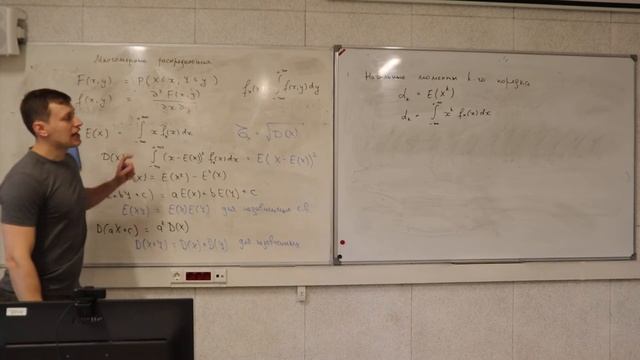 Многомерные распределения
F(x,y) = P(X≤x, Y≤y)
f(x,y) = ∂²F(x,y) / ∂x∂y
fₓ(x) = ∫_{-∞}^{+∞} f(x,y)dy
E(X) = ∫_{-∞}^{+∞} x fₓ(x)dx
σₓ = √D(X)
D(X) = ∫_{-∞}^{+∞} (x-E(X))² fₓ(x)dx = E(X-E(X))²
(X) = E(X²) - E²(X)
+bY+c) = aE(X)+bE(Y)+c
E(XY) = E(X)E(Y) для независимых с.в.
D(aX+c) = a²D(X)
D(X+Y) = D(X)+D(Y) для независимых
Начальные моменты k-го порядка
αₖ = E(Xᵏ)
αₖ = ∫_{-∞}^{+∞} xᵏ fₓ(x)dx